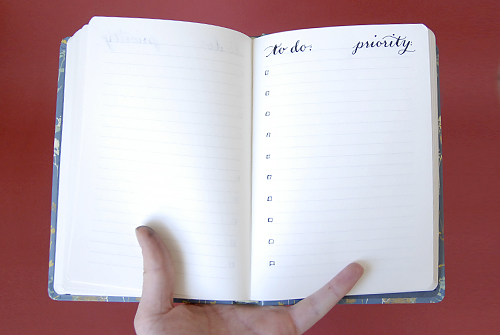 to do: priority: